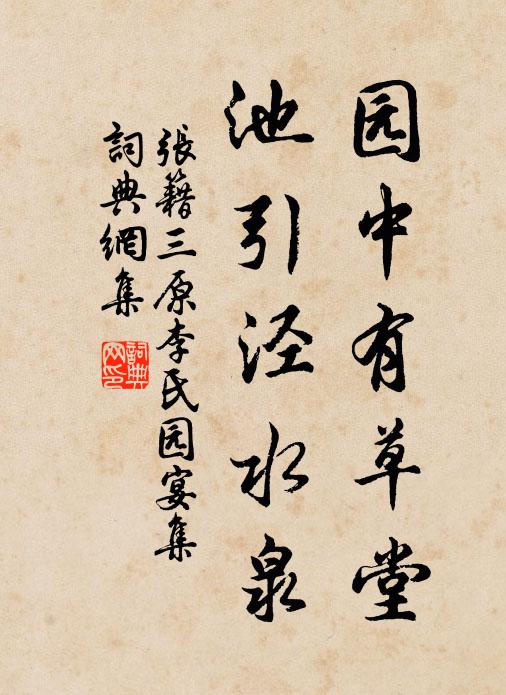 园中有草堂
池引泾水泉
張籍三原李氏园宴集
詞典網集
詞典网印